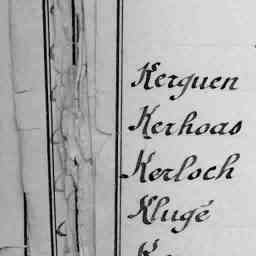 Kerguen
Kerhoas
Kerloch
Klugé